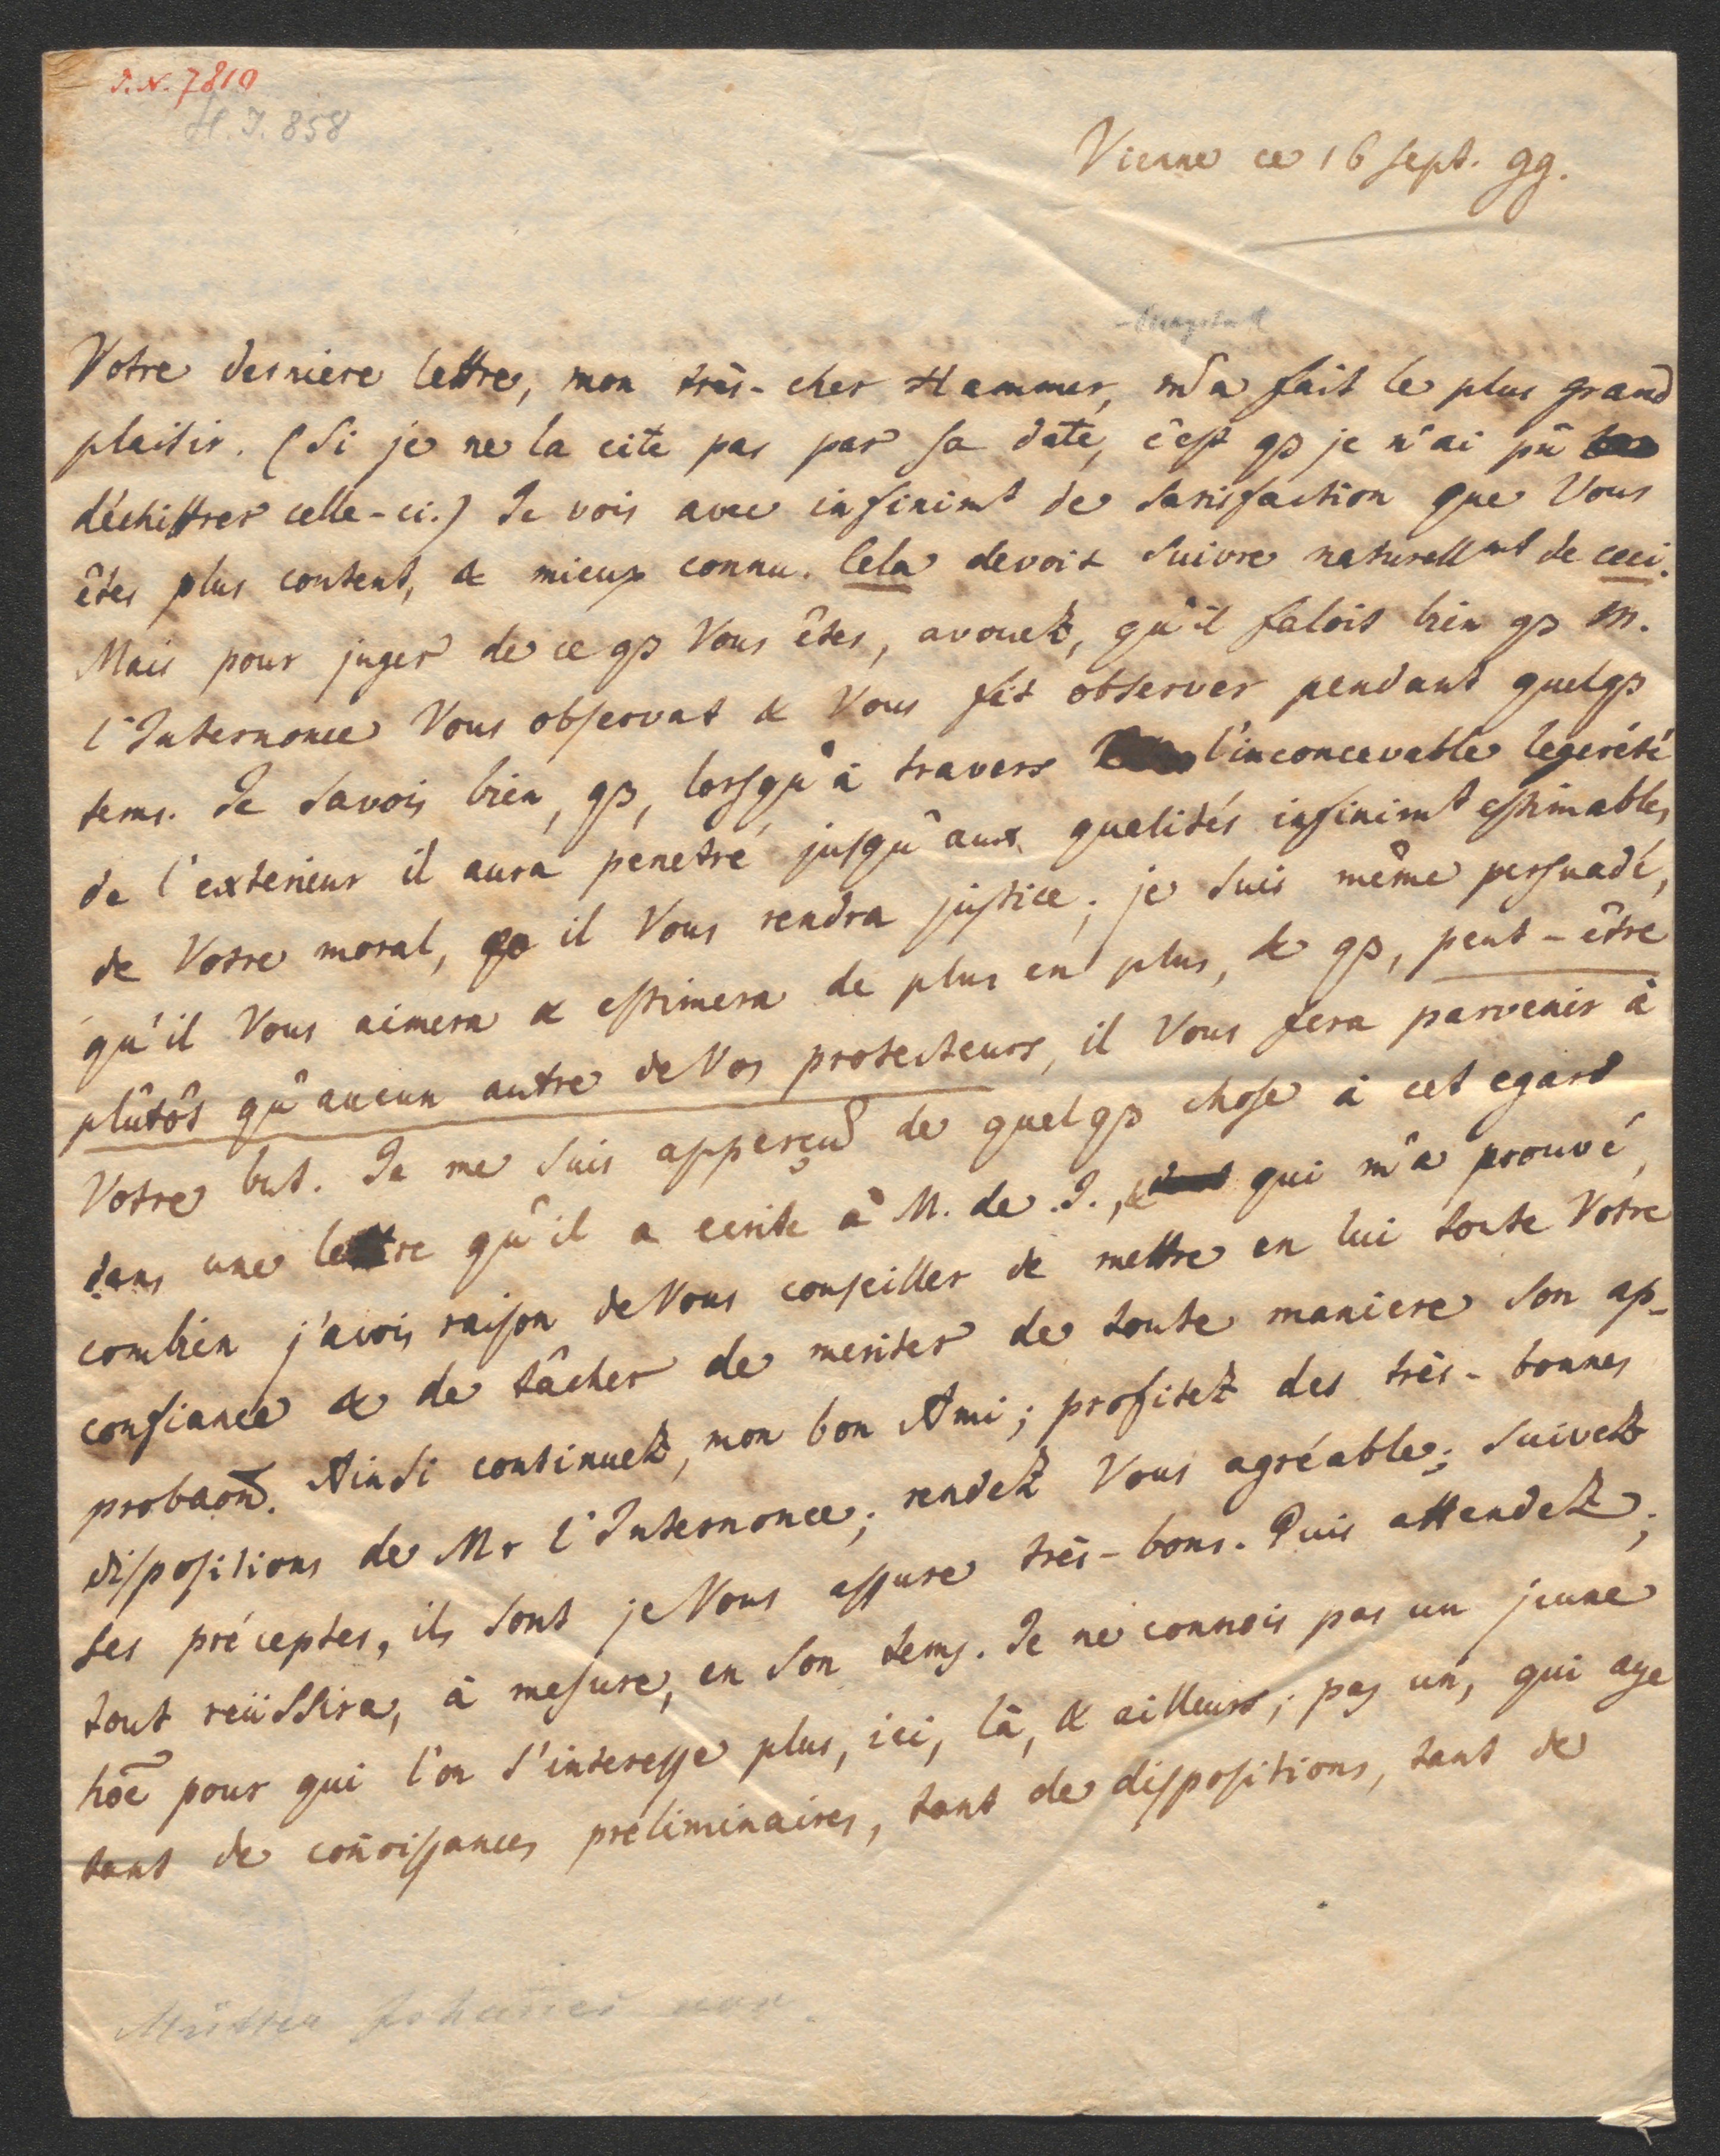 J.N. 7810
H.J. 858
Vienne ce 16 sept. 99.
Votre derniere lettre, mon très-cher Hammer, m'a fait le plus grand
plaisir. (Si je ne la cite pas par sa date, c'est qs je n'ai pû
déchiffrer celle-ci.) Je vois avec infinimt de satisfaction que Vous
êtes plus content, & mieux connu. Cela devoit suivre naturellmt de ceci.
Mais pour juger de ce qs Vous êtes, avouez, qu'il faloit bien qs M.
l'Internonce Vous observat & Vous fit observer pendant quelqs
tems. Je savois bien, qs, lorsqu'à travers l'inconcevable legereté
de l'exterieur il aura penetré jusqu'aux qualités infinimt estimables
de Votre moral, il Vous rendra justice; je suis même persuadé,
qu'il Vous aimera & estimera de plus en plus, & qs, peut-être
plûtôt qu'aucun autre de Vos protecteurs, il Vous fera parvenir à
Votre but. Je me suis apperçu de quelqs chose à cet egard
dans une lettre qu'il a ecrite à M. de J., & qui m'a prouvé,
combien j'avois raison de Vous conseiller de mettre en lui toute Votre
confiance & de tâcher de meriter de toute maniere son ap-
probaon. Ainsi continuez, mon bon Ami; profitez des très-bonnes
dispositions de Mr l'Internonce; rendez Vous agréable; suivez
ses préceptes, ils sont je Vous assure très-bons. Puis attendez;
tout reüssira, à mesure, en son tems. Je ne connois pas un jeune
hoe pour qui l'on s'interesse plus, ici, là, & ailleurs; pas un, qui aye
tant de coñoissances préliminaires, tant de dispositions, tant de
Müller Johannes von.